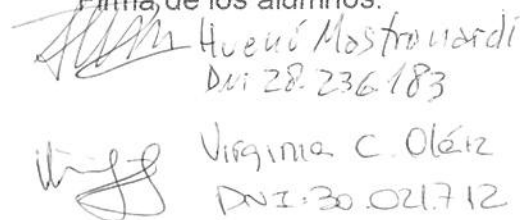 Firma de los alumnos:
Huenú Mastronardi
DNI 28.236.183
Virginia C. Oláiz
DNI: 30.021.712